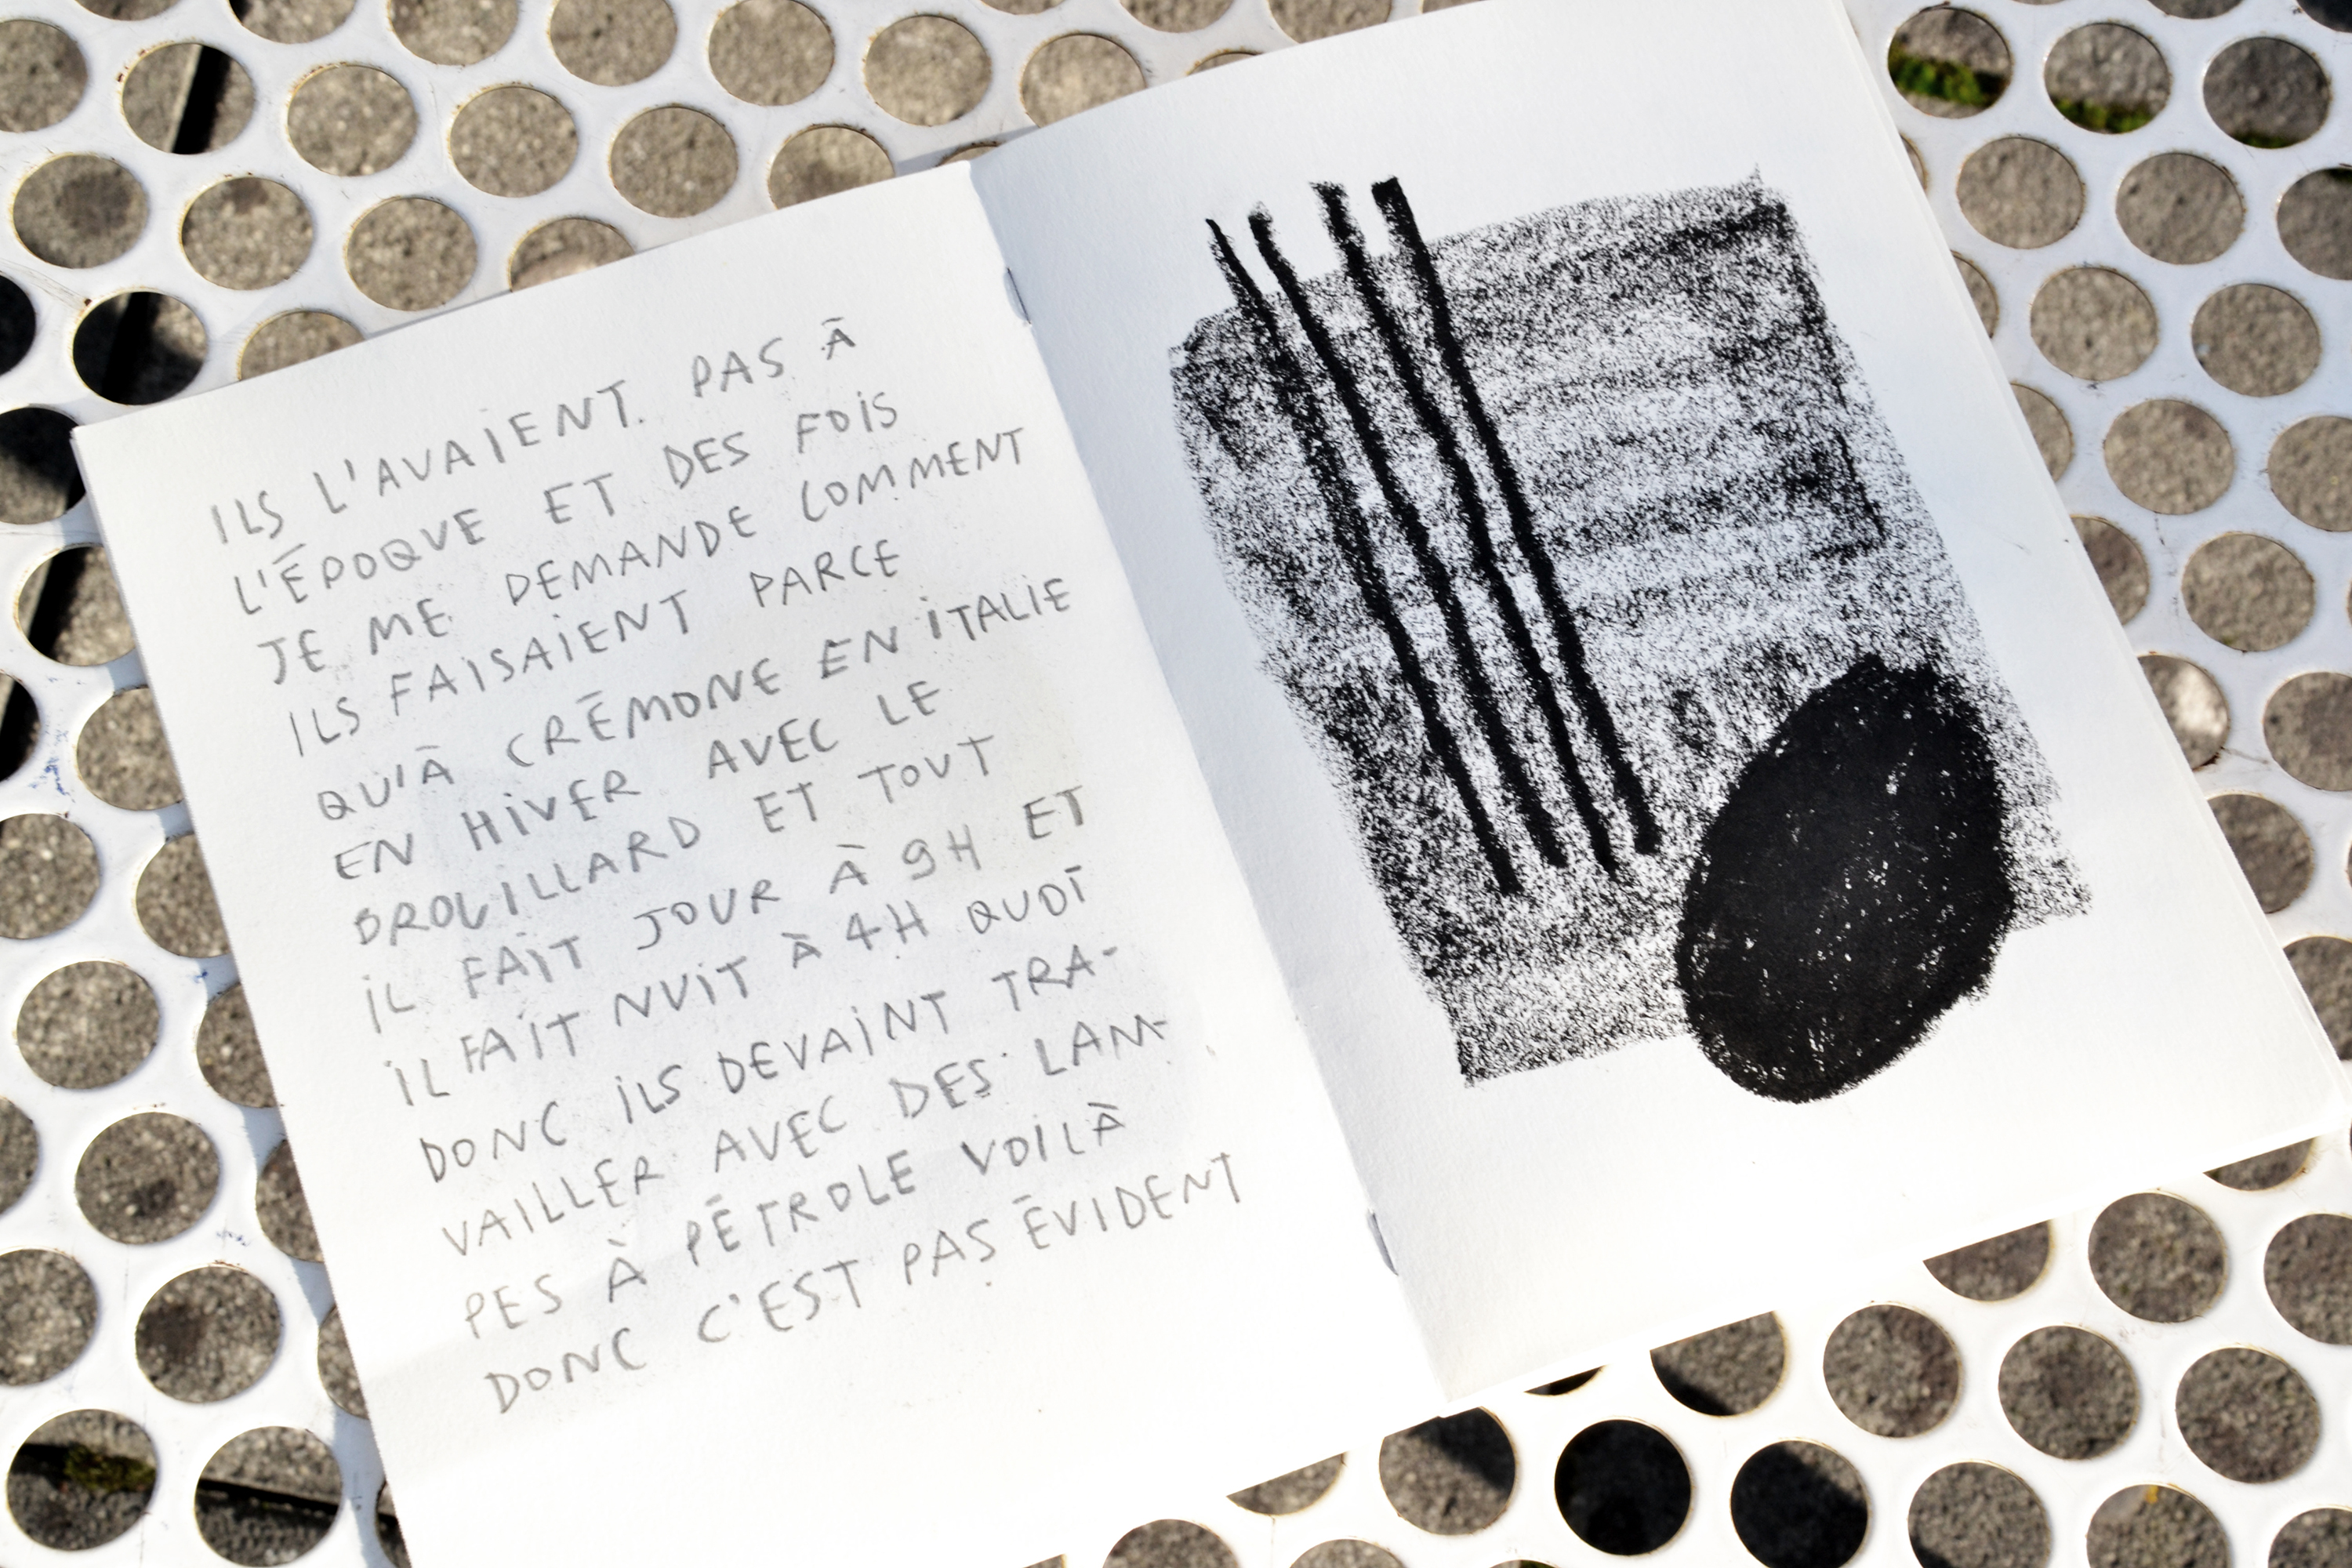 ILS L'AVAIENT PAS À
L'ÉPOQUE ET DES FOIS
JE ME DEMANDE COMMENT
ILS FAISAIENT PARCE
QU'À CRÉMONE EN ITALIE
EN HIVER AVEC LE
BROUILLARD ET TOUT
IL FAIT JOUR À 9H ET
IL FAIT NUIT À 4H QUOI
DONC ILS DEVAINT TRA-
VAILLER AVEC DES LAM-
PES À PÉTROLE VOILÀ
DONC C'EST PAS ÉVIDENT